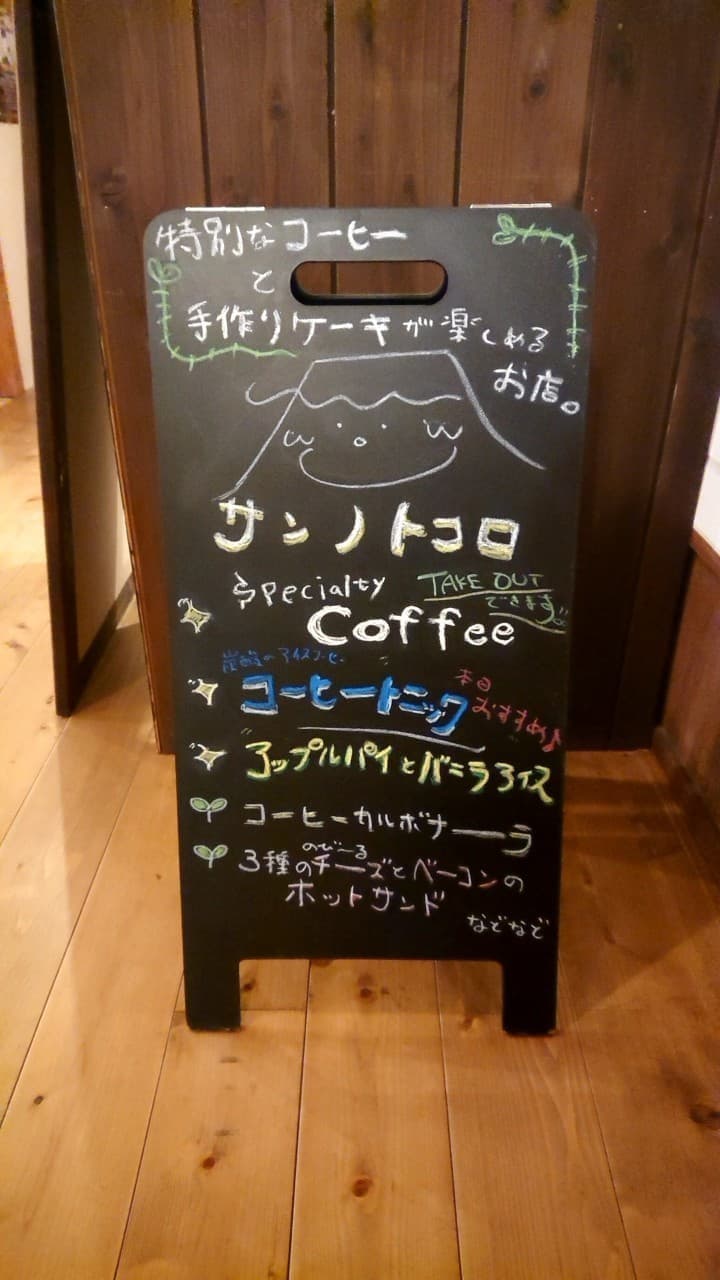 特別なコーヒー
と
手作りケーキが楽しめる
お店。
サンノトコロ
Specialty
TAKE OUT
できます。
Coffee
炭酸のアイスコーヒー
コーヒートニック
本日
おすすめ♪
アップルパイとバニラアイス
コーヒーカルボナーラ
のびーる
3種のチーズとベーコンの
ホットサンド
などなど